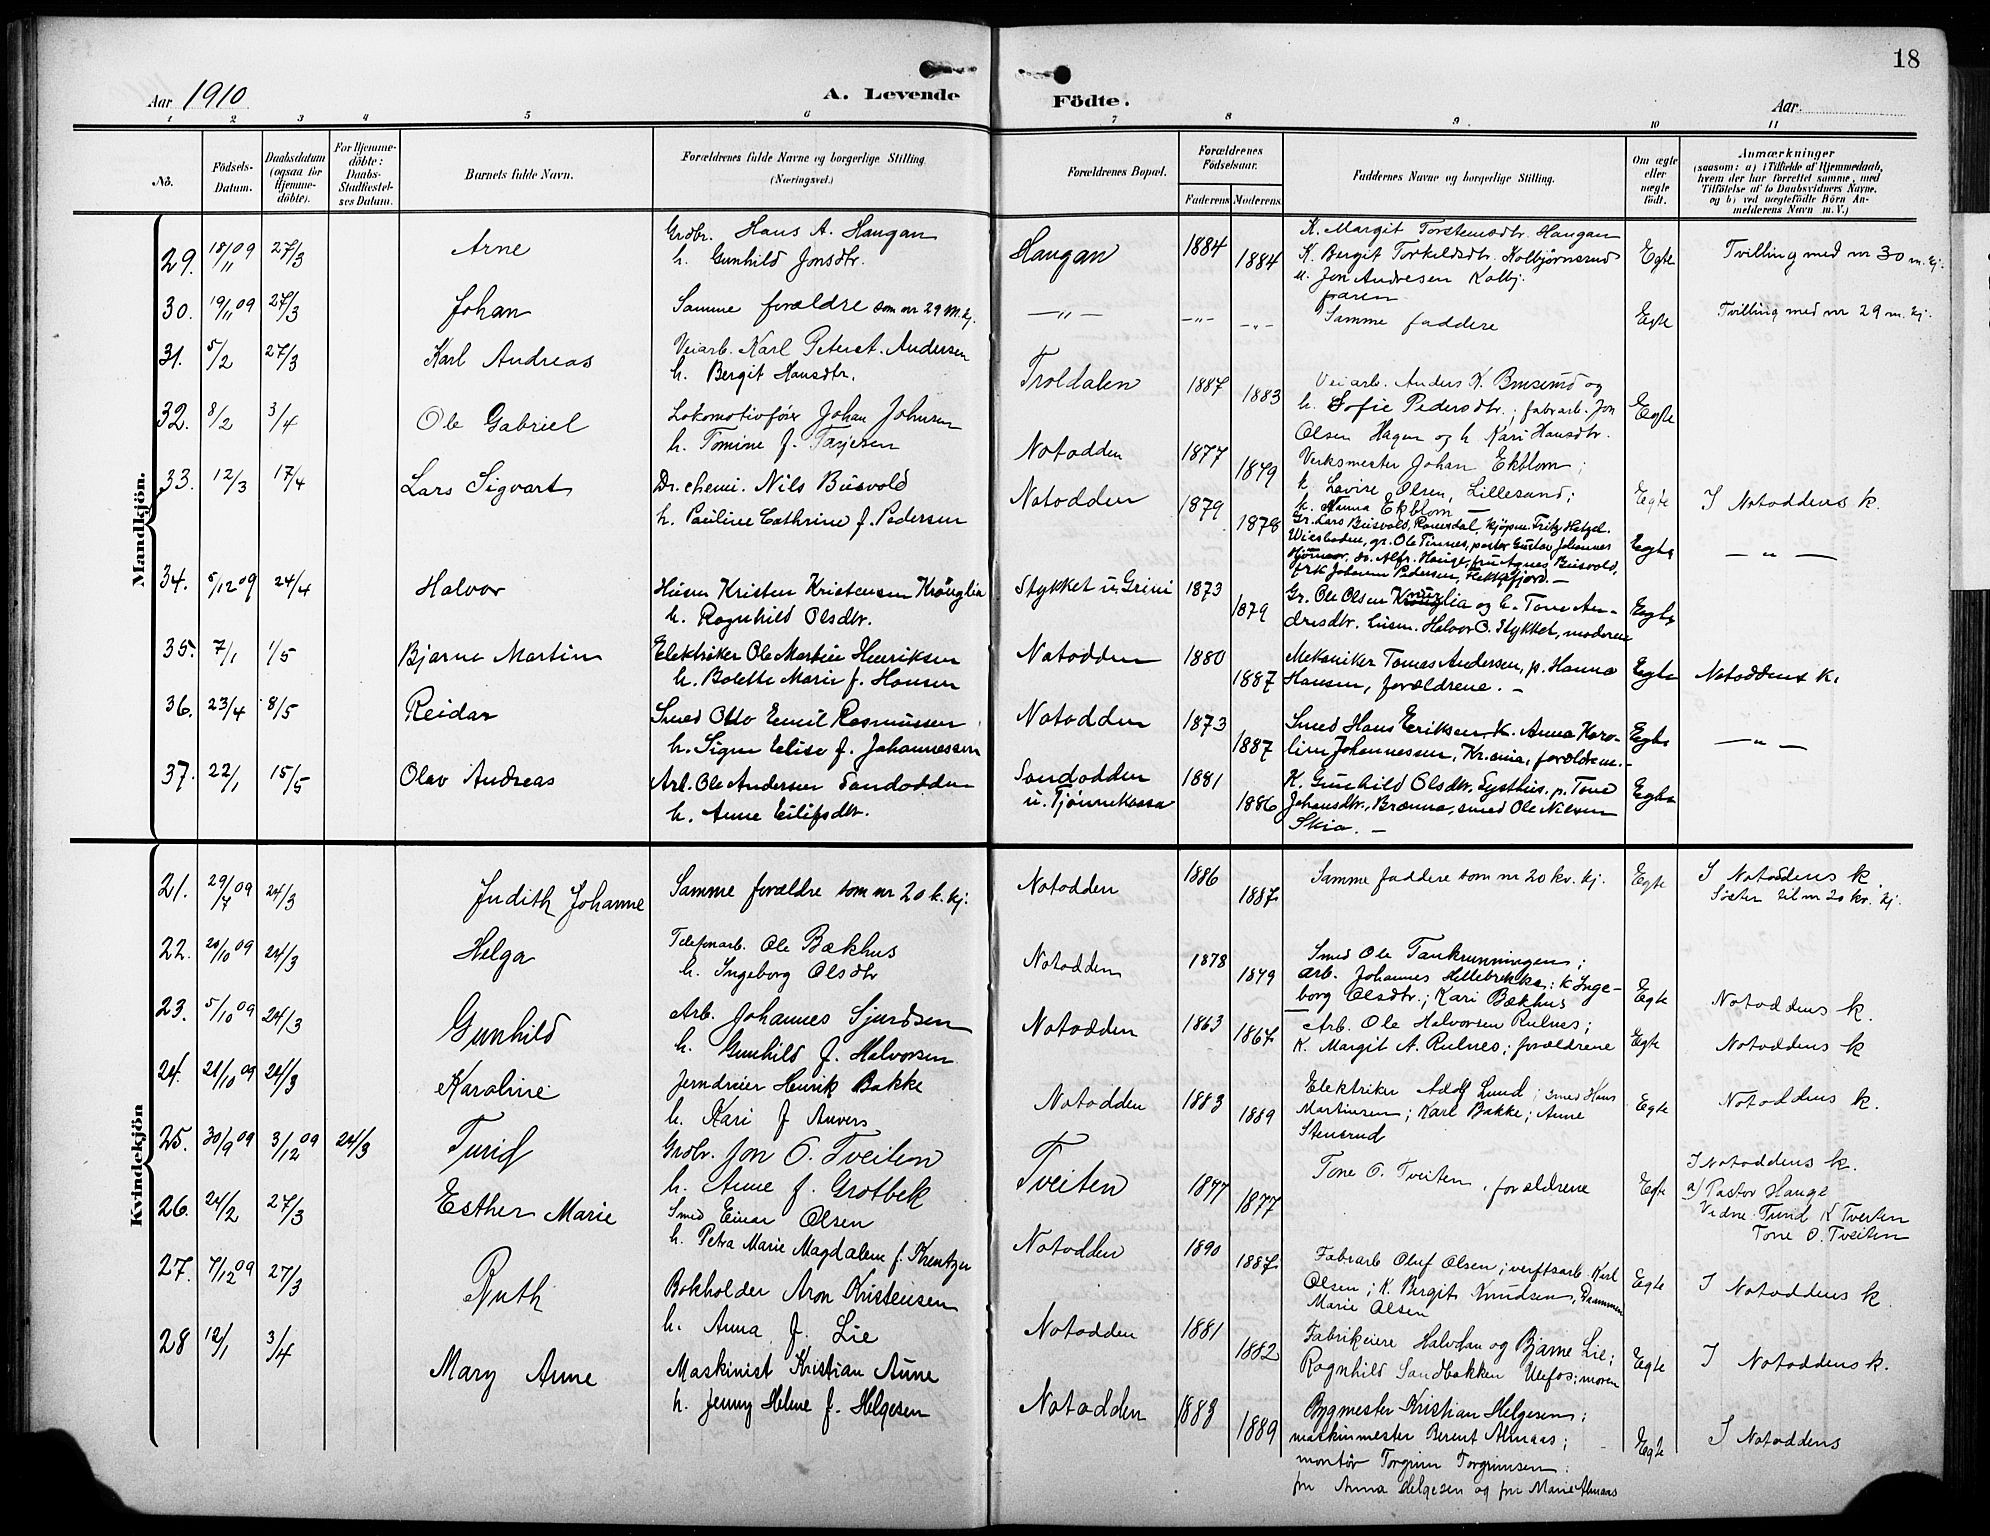 18
Aar 1910
A. Levende Födte.
Aar
1 2 3 4 5 6 7 8 9 10 11
No.
Födsels-Datum.
Daabsdatum (ogsaa for Hjemme-döbte).
For Hjemme-döbte: Daabs-Stadfæstel-ses Datum.
Barnets fulde Navn.
Forældrenes fulde Navne og borgerlige Stilling. (Næringsvei.)
Forældrenes Bopæl.
Forældrenes Födselsaar.
Faderens Moderens
Faddernes Navne og borgerlige Stilling.
Om ægte eller uægte födt.
Anmærkninger
(saasom: a) i Tilfælde af Hjemmedaab, hvem der har forrettet samme, med Tilföielse af to Daabsvidners Navne, og b) ved uægtefödte Börn An-melderens Navn m. V.)
Mandkjön.
29. 18/11 09 27/3 Arne
Grdbr. Hans A. Haugan
h. Gunhild Jonsdtr.
Haugan 1884 1884
K. Margit Torstensdtr. Haugan
K. Bergit Torkildsdtr. Kolbjørnsrud
u. Jon Andresen Kolbj.
faren
Egte
Tvilling med nr 30 m. kj.
30. 19/11 09 27/3 Johan
Samme forældre som nr 29 m. kj.
— „ — — „ — — „ —
Samme faddere
Egte
Tvilling med nr 29 m. kj.
31. 5/2 27/3 Karl Andreas
Veiarb. Karl Peter A. Andersen
h. Bergit Hansdtr.
Troldalen 1887 1883
Veiarb. Anders K. Buserud og
h. Sofie Pedersdtr.; fabrarb. Jon
Olsen Hagen og h. Kari Hansdtr.
Egte
32. 8/2 3/4 Ole Gabriel
Lokomotivfører Johan Johnsen
h. Tomine f. Tarjesen
Notodden 1877 1879
Verksmester Johan Ekblom;
k Lovise Olsen, Lillesand;
k. Hanna Ekblom —
Egte
I Notoddens k.
33. 12/3 17/4 Lars Sigvart
Dr. chemi. Nils Busvold
h. Pauline Cathrine f. Pedersen
Notodden 1879 1878
Gr. Lars Busvold, Romsdal, kjøpm. Fritz Hetzel
Wiesbaden, gr. Ole Tinnes, pastor Gustav Johannes
Hjørnaar, dr. Alfr. Hauge, fru Agnes Busvold,
frk Johanne Pedersen, Flekkefjord. —
Egte
— „ —
34. 5/12 09 24/4 Halvor
Husm. Kristen Kristensen Krøuglia
h. Ragnhild Olsdtr.
Stykket u. Grini 1873 1879
Gr. Ole Olsen Krøuglia og h. Tone An-
dresdtr. husm. Halvor O. Stykket, moderen
Egte
35. 7/1 1/5 Bjarne Martin
Elektriker Ole Martin Henriksen
h. Bolette Marie f. Hansen
Notodden 1880 1887
Mekaniker Tomas Andersen, p. Hanna
Hansen, forældrene. —
Egte
Notoddens k.
36. 23/4 8/5 Reidar
Smed Otto Emil Rasmussen
h. Signe Elise f. Johannessen
Notodden 1873 1887
Smed Hans Eriksen, k. Anna Karo-
line Johannessen, Kr.ania, forældrene. —
Egte
— „ —
37. 22/1 15/5 Olav Andreas
Arb. Ole Andersen Sandodden
h. Anne Eilifsdtr.
Sandodden
u. Tjønnekaasa 1881 1886
K. Gunhild Olsdtr. Lysthus, p. Tone
Johansdtr., Brænna, smed Ole Nilsen
Skia. —
Egte
Kvindekjön
21. 29/7 09 24/3 Judith Johanne
Samme forældre som nr 20 k. kj.
Notodden 1886 1887
Samme faddere som nr 20 kv. kj.
Egte
I Notoddens k.
Søster til nr 20 kv. kj.
22. 20/10 09 24/3 Helga
Telefonarb. Ole Bækhus
h. Ingeborg Olsdtr
Notodden 1878 1879
Smed Ole Tankrunningen;
arb. Johannes Hellebrekke; k Inge-
borg Olsdtr.; Kari Bækhus
Egte
Notoddens k.
23. 5/10 09 24/3 Gunhild
Arb. Johannes Sjurdsen
h. Gunhild f. Halvorsen
Notodden 1863 1867
Arb. Ole Halvorsen Rulnes;
K. Margit A. Rulnes; forældrene
Egte
Notoddens k
24. 21/10 09 24/3 Karoline
Jerndreier Henrik Bakke
h. Kari f Anvers
Notodden 1883 1889
Elektriker Adolf Lund; smed Hans
Martinsen; Karl Bakke; Anne
Stensrud
Egte
Notoddens k.
25. 30/9 09 3/12 09 24/3 Turid
Grdbr. Jon O. Tveiten
h. Anne f. Grotbek
Tveiten 1877 1877
Tone O. Tveiten, forældrene
Egte
I Notoddens k.
a) Pastor Hauge
Vidne: Turid K Tveiten
Tone O. Tveiten
26. 24/2 27/3 Esther Marie
Smed Einar Olsen
h. Petra Marie Magdalene f. Krentzer
Notodden 1890 1887
Fabrarb Oluf Olsen; verftsarb Karl
Olsen; K. Bergit Knudsen, Drammen
Marie Olsen
Egte
I Notoddens k.
27. 7/12 09 27/3 Ruth
Bokholder Aron Kristensen
h. Anna f. Lie
Notodden 1881 1882
Fabrikeiere Halvdan og Bjarne Lie;
Ragnhild Sandbakken Ulefos; moren
Egte
I Notoddens k.
28 12/1 3/4 Mary Anne
Maskinist Kristian Aune
h. Jenny Helene f. Helgesen
Notodden 1883 1889
Bygmester Kristian Helgesen;
maskinmester Berent Almaas;
montør Torgrim Torgrimsen;
fru Anna Helgesen og fru Marie Almaas
Egte
I Notoddens